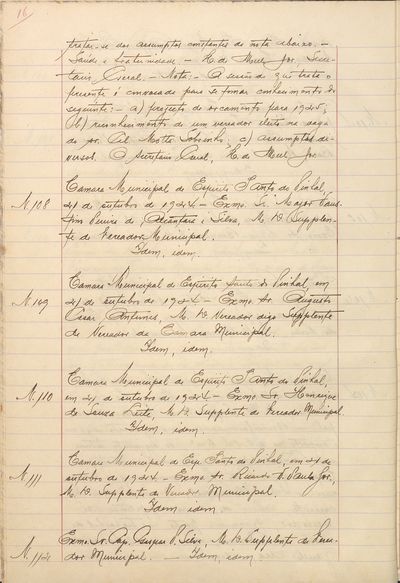 16
tratar-se dos assumptos constantes da nota abaixo. -
Saude e fraternidade. - H. de Jor, Secre-
tario Geral. - Nota: - A sessão de que trata o
presente é convocada para se tomar conhecimento do
seguinte: - a) projecto de orçamento para 1925;
(b) reconhecimento de um vereador eleito na vaga
do sr. Cel. Motta Sobrinho; c) assumptos di-
versos. O Secretario Geral, H. de Jor.
Camara Municipal de Espirito Santo do Pinhal,
N. 108
21 de outubro de 1924 - Exmo. Sr. Major
de Alcantara e Silva, M. D. Supplen-
te de Vereador Municipal.
Idem, idem.
Camara Municipal de Espirito Santo do Pinhal, em
N. 109
21 de outubro de 1924 - Exmo Sr. Augusto
Cesar Antunes, M. D. Vereador digo Supplente
de Vereador da Camara Municipal.
Idem, idem.
Camara Municipal de Espirito Santo do Pinhal,
N. 110
em 21, de outubro de 1924 - Exmo Sr. Henrique
de Souza Leite, M. D. Supplente de Vereador Municipal
Idem, idem.
Camara Municipal de Esp. Santo do Pinhal, em 21 de
N. 111
outubro de 1924 - Exmo Sr. Ricardo Paula Jor,
M. D. Supplente de Vereador Municipal.
Idem idem
Exmo. Sr. Gaspar P. Silva, M. D. Supplente de Verea-
N. 112
dor Municipal. - Idem, idem